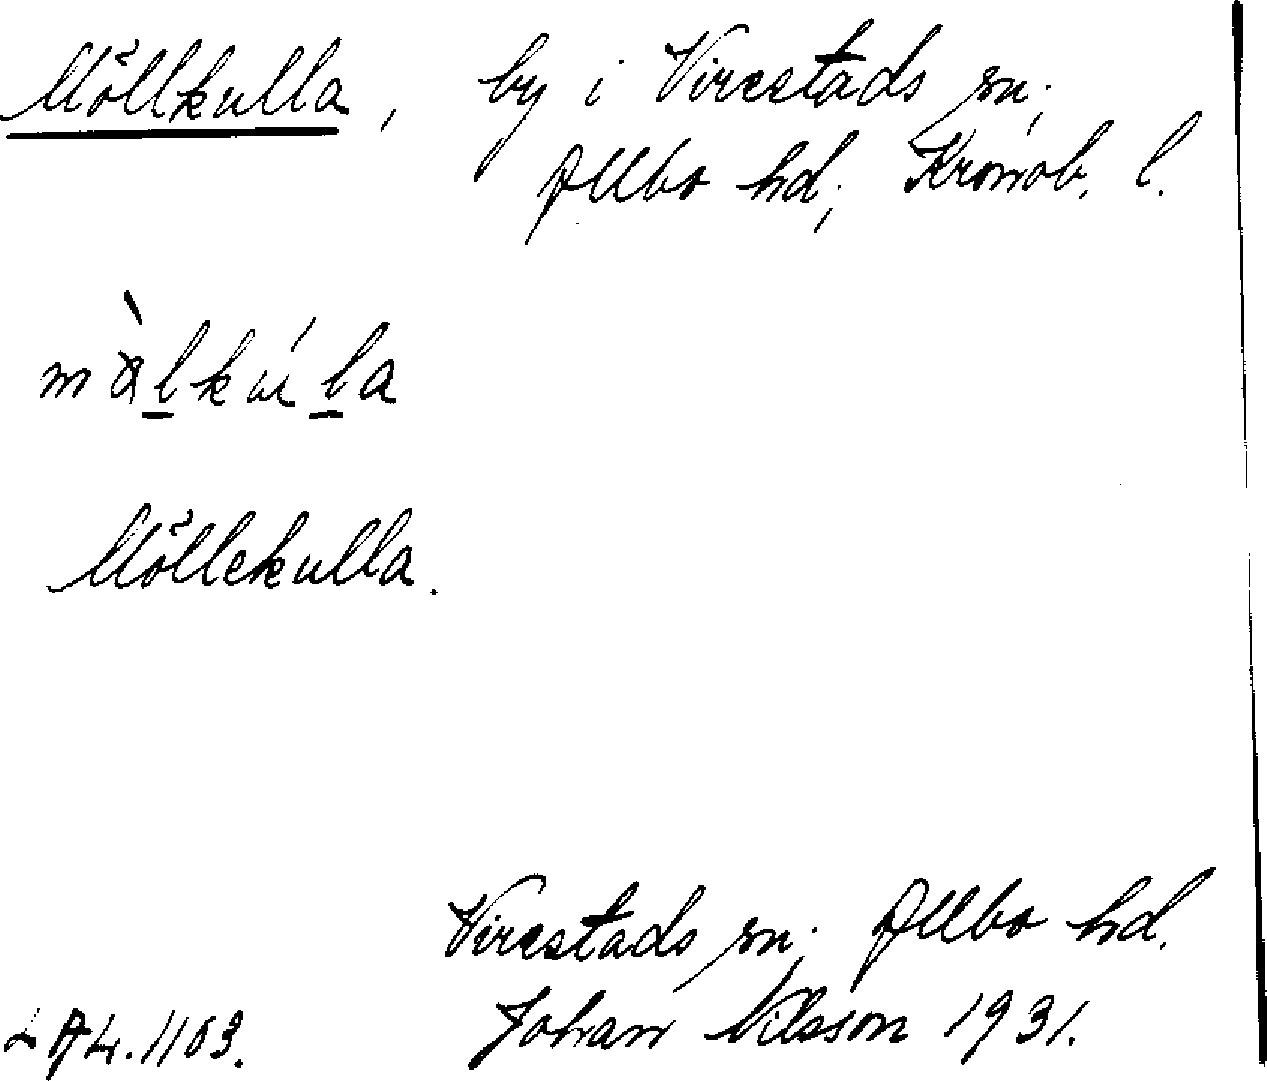 Möllkulla, by i Virestads sn;
Allbo hd; Kronob. l.
mὰlkúla
Möllekulla.
Virestads sn; Allbo hd.
LAL. 1103. Johan Nilsson 1931.